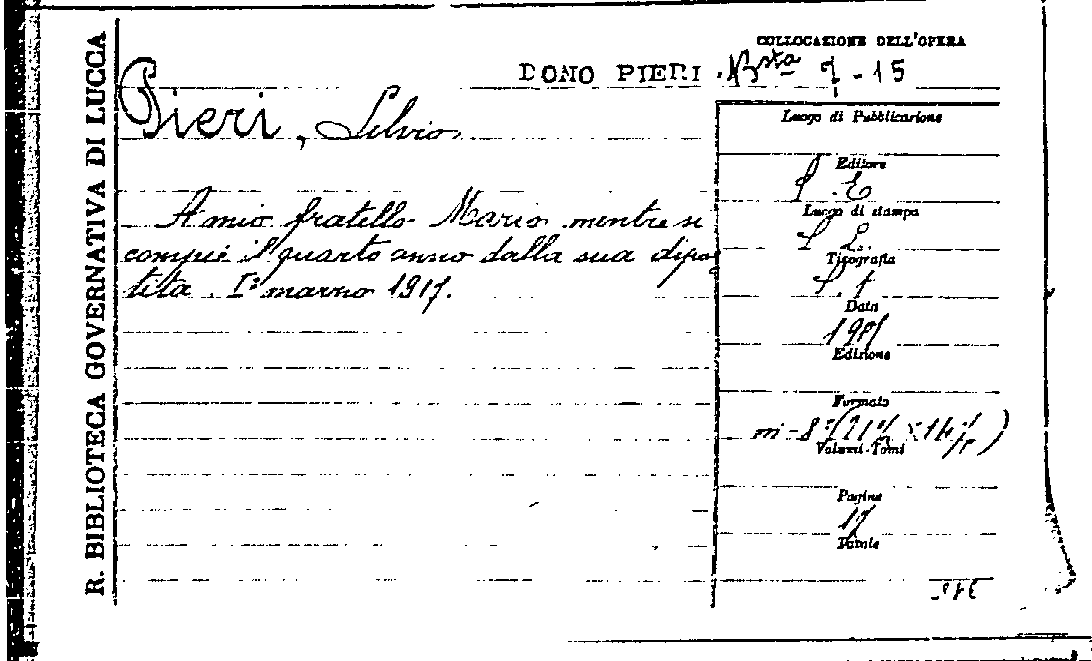 R. BIBLIOTECA GOVERNATIVA DI LUCCA
COLLOCAZIONE DELL'OPERA
DONO PIERI . Bsta 7-15
Pieri, Silvio
A mio fratello Mario mentre si
compie il quarto anno dalla sua dipar
tita. I° marzo 1917.
Luogo di Pubblicazione
Editore
S. E.
Luogo di stampa
S. L.
Tipografia
S. t
Data
1917
Edizione
Formato
in-8°
Volumi-Tomi
Pagine
17
Tavole